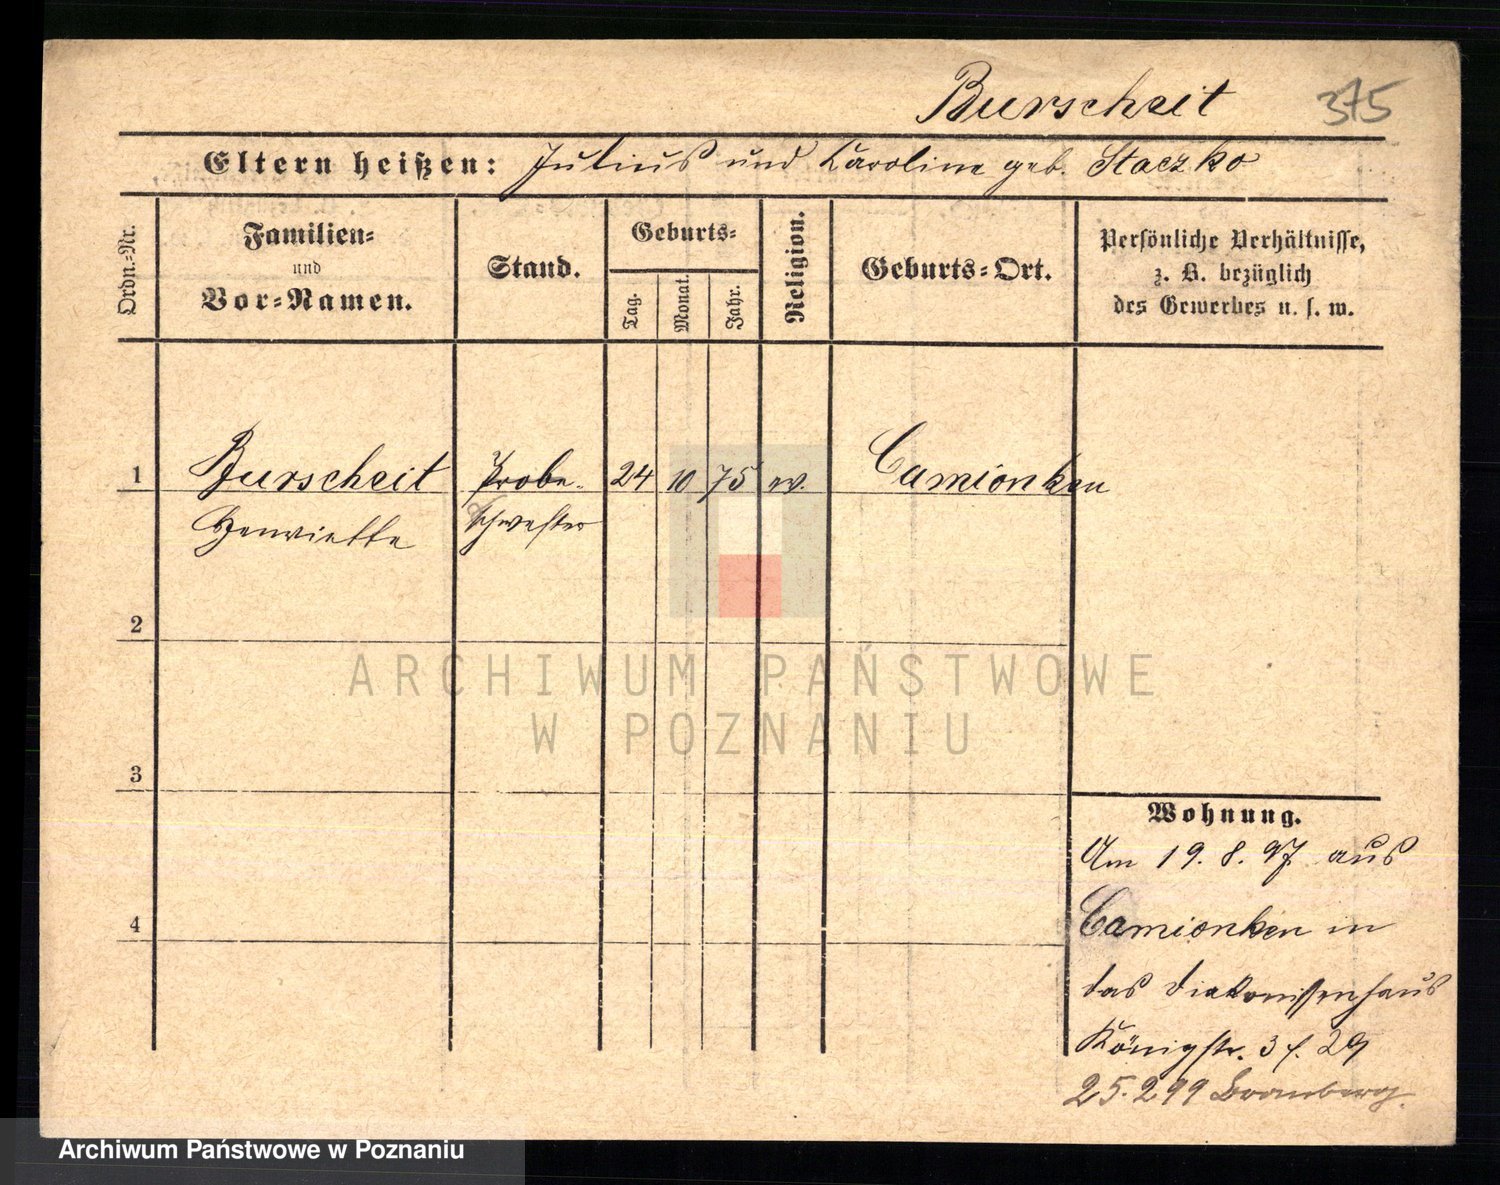 Burscheit 375
Eltern heißen: Julius und Karoline geb. Staczko
Ordn.-Nr.
Familien-
und
Vor-Namen.
Stand.
Geburts-
Tag.
Monat.
Jahr.
Religion.
Geburts-Ort.
Persönliche Verhältnisse,
z. B. bezüglich
des Gewerbes u. s. w.
1 Burscheit Probe- 24 10 75 ev. Camionken
Henriette schwester
2
3
4
Wohnung.
Am 19. 8. 97 aus
Camionken in
das Diakonissenhaus
Königstr. 3 f. 29
25.2 99 Bromberg.
ARCHIWUM PAŃSTWOWE
W POZNANIU
Archiwum Państwowe w Poznaniu